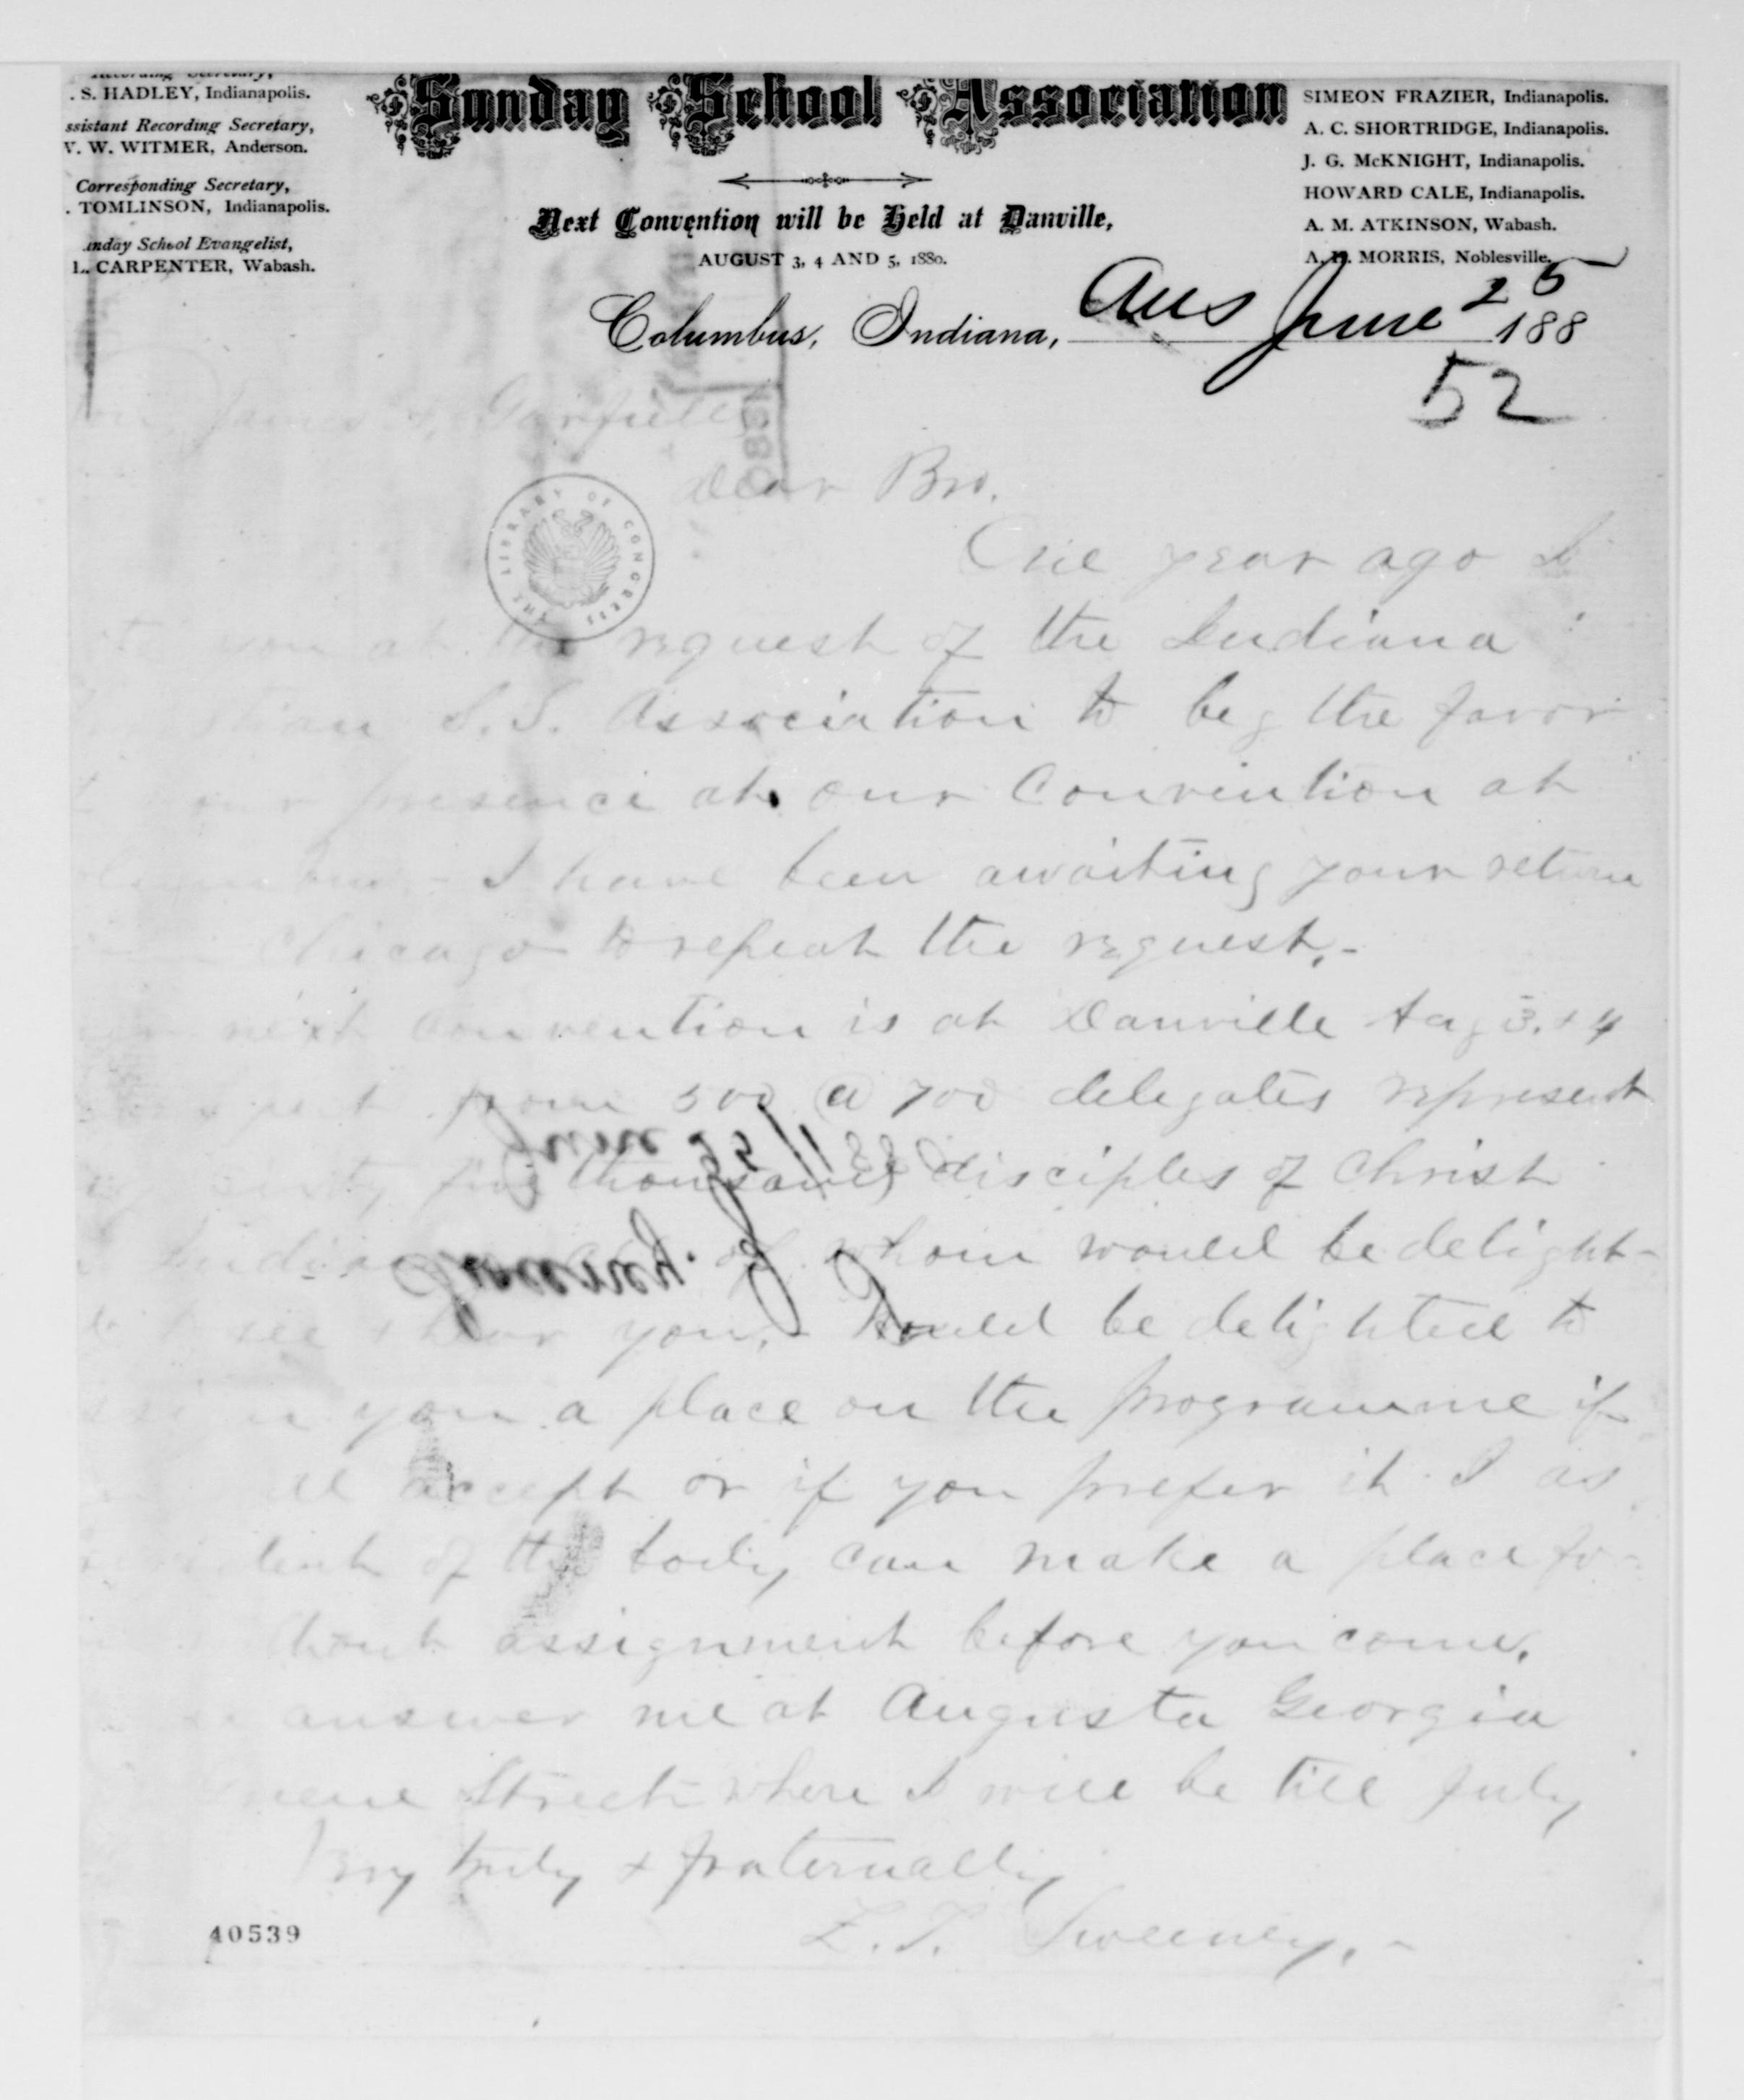 Recording Secretary,
. S. HADLEY, Indianapolis.
ssistant Recording Secretary,
W. WITMER, Anderson.
Corresponding Secretary,
. TOMLINSON, Indianapolis.
unday School Evangelist,
L. CARPENTER, Wabash.
Sunday School Association
Next Convention will be Held at Danville,
AUGUST 3, 4 AND 5, 1880.
SIMEON FRAZIER, Indianapolis.
A. C. SHORTRIDGE, Indianapolis.
J. G. McKNIGHT, Indianapolis.
HOWARD CALE, Indianapolis.
A. M. ATKINSON, Wabash.
MORRIS, Noblesville.
Columbus, Indiana, Ans June 25 188
52
James A. Garfield
Dear Bro.
THE LIBRARY OF CONGRESS
One year ago I
you at the request of the Indiana
S. S. Association to beg the favor
your presence at our Convention at
I have been awaiting your return
Chicago to repeat the request.-
next Convention is at Danville Aug 3. & 4
from 500 @ 700 delegates represent
five thousand disciples of Christ
of whom would be delight-
see & hear you.- Would be delighted to
you a place on the programme if
accept or if you prefer it I as
of the body can make a place for
assignment before you come.
answer me at Augusta Georgia
Street where I will be till July
Very truly & fraternally
Z. T. Sweeney.-
40539
1880
June 25/1880